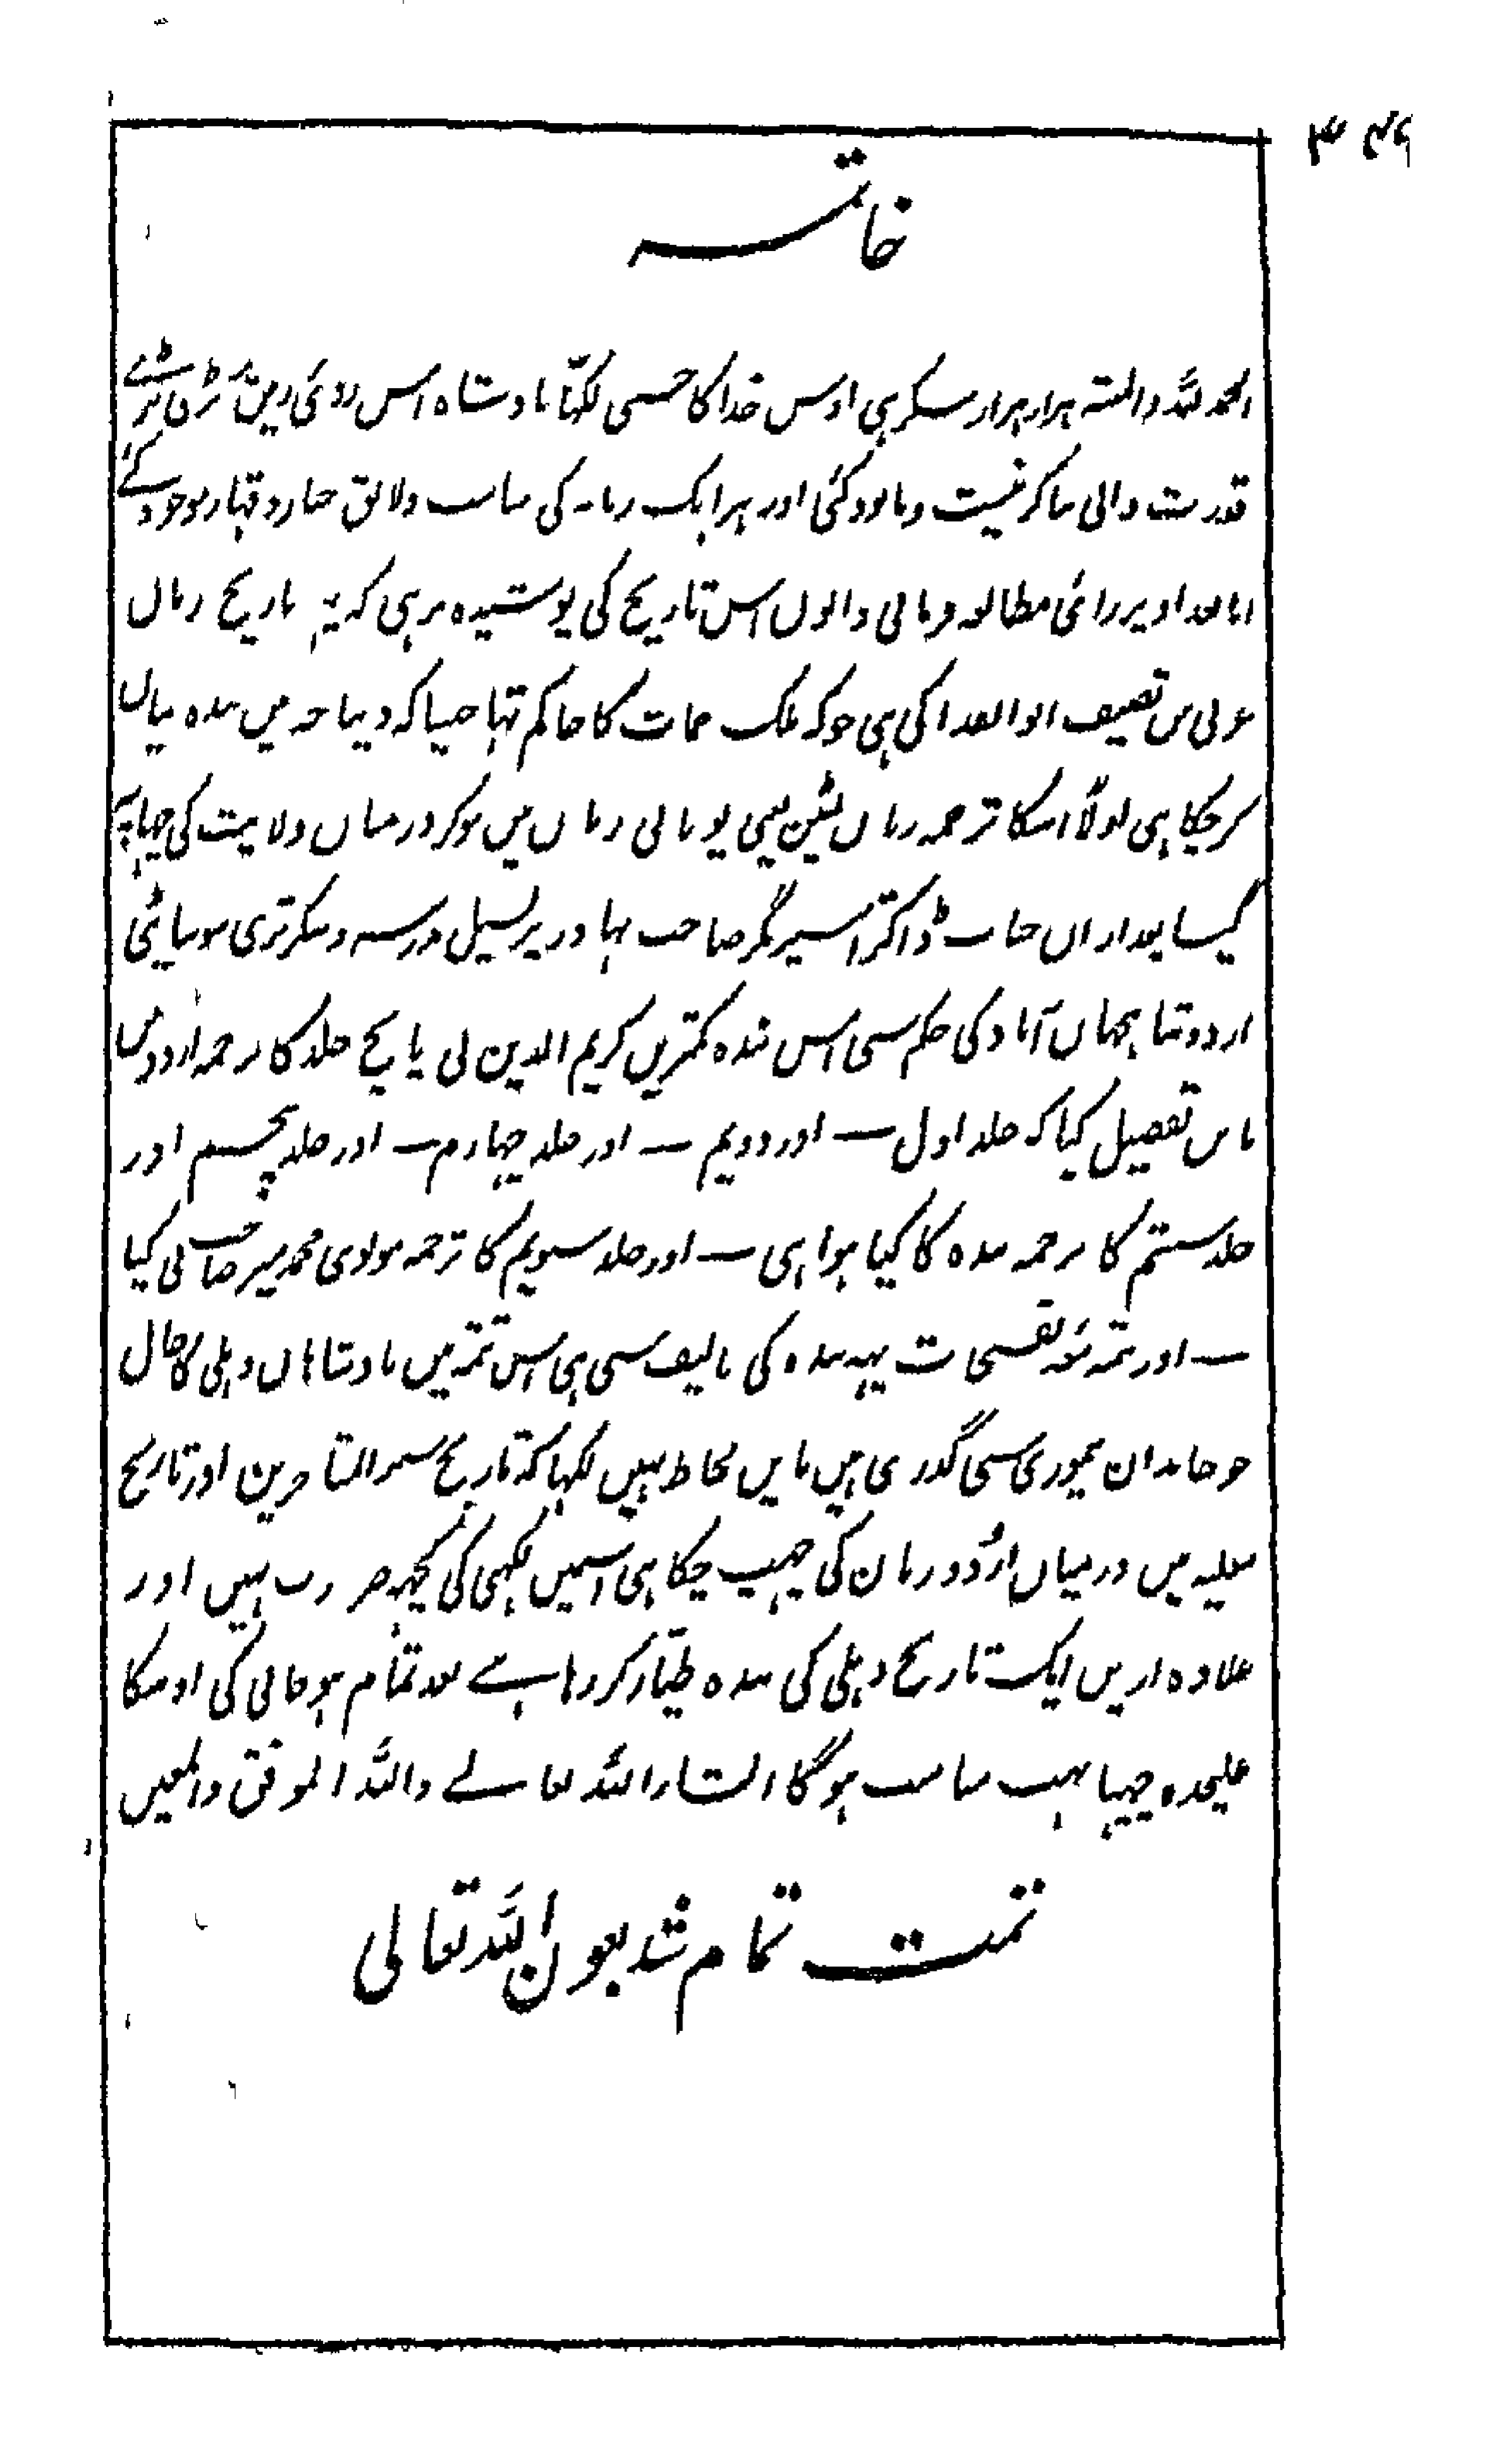 ۳۴۶
خاتمہ
الحمد للہ والمنتہ ہزار ہزار شکر ہی اوس خدا کا جسی لکہّا بادشاہ اس روئی زمین پر بڑے
قدرت والی بناکر نیست ونابود کئی اور ہر ایک زمانہ کی مناسب ولائق جبار و قہار موجود کئے
اما بعد اوپر رائی مطالعہ فرمانی والوں اس تاریخ کی پوشیدہ نرہی کہ یہ تاریخ زبان
عربی میں تصنیف ابوالفدا کی ہی جوکہ ملک حمات کا حاکم تہا جیسا کہ دیباچہ میں بندہ بیان
کرچکا ہی اولاً اسکا ترجمہ زبان لیٹن یعنی یونانی زبان میں ہوکر درمیان ولایت کی چہاپہ
گیا بعد ازاں جناب ڈاکتر اسپرنگر صاحب بہادر پرنسپل مدرسہ وسکرتری سوسائٹی
اردو شاہجہاں آباد کی حکم سی اس بندہ کمترین کریم الدین نی پانچ جلد کا ترجمہ اردو میں
بایں تفصیل کیا کہ جلد اول — اور دویم — اور جلد چہارم — اور جلد پنجسم اور
جلد ششم کا ترجمہ بندہ کا کیا ہوا ہی — اور جلد سویم کا ترجمہ مولوی محمد میر صاحب نی کیا
— اور تتمہ معہ نقشجات یہہ بندہ کی تالیف سی ہی اس تتمہ میں بادشاہاں دہلی کا حال
جو خاندان تیموری سی گذری ہیں بایں لحاظ نہیں لکہا کہ تاریخ سیر المتاخرین اور تاریخ
مغلیہ میں درمیان اُردو زبان کی چہپ چکا ہی اسمیں لکہی کی کچہہ ضرورت نہیں اور
علاوہ ازیں ایک تاریخ دہلی کی بندہ طیّار کر رہا ہے بعد تمام ہوجانی کی اوسکا
علیحدہ چہپنا بہت مناسب ہوگا انشاء اللہ تعالے واللہ الموفق والمعین
تمت تمام شد بعون اللہ تعالی